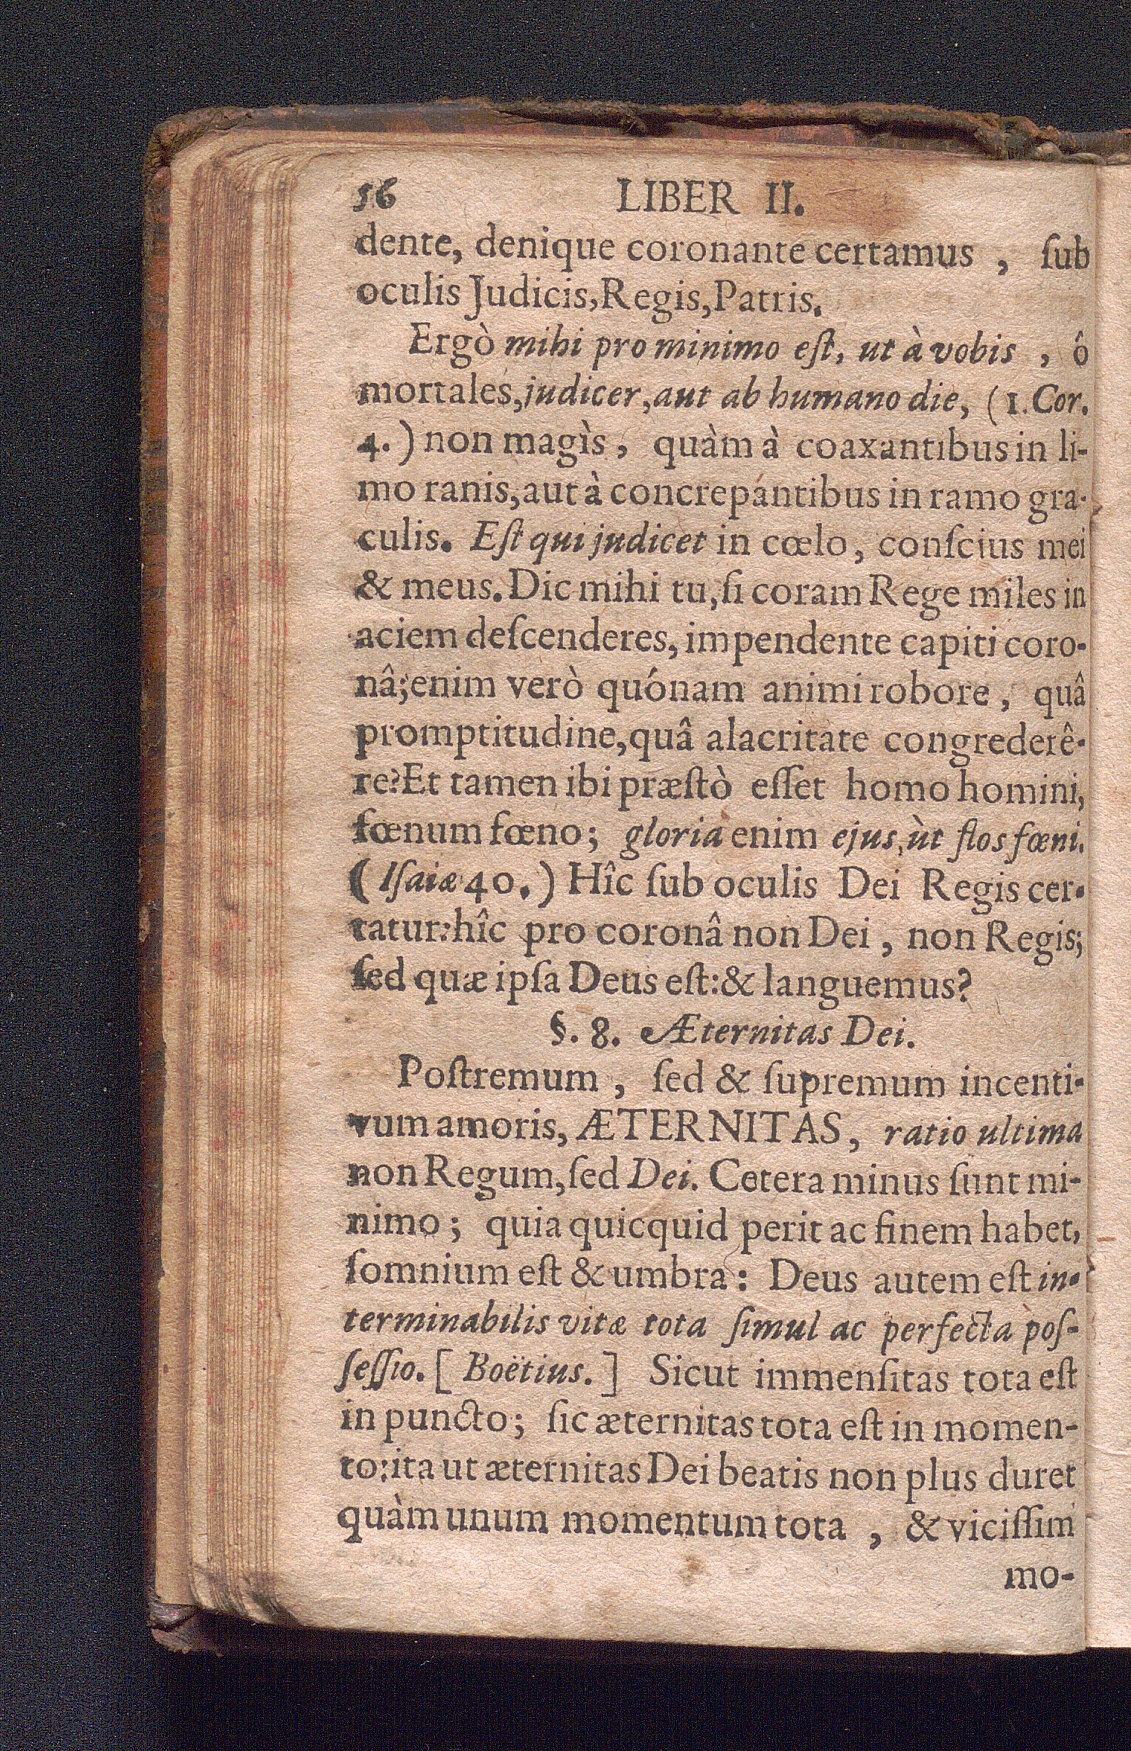 56 LIBER II.
dente, denique coronante certamus , ſub
oculis Judicis, Regis, Patris.
Ergò mihi pro minimo eſt, ut à vobis , ô
mortales, judicer, aut ab humano die, (1. Cor.
4.) non magìs , quàm à coaxantibus in li-
mo ranis, aut à concrepantibus in ramo gra-
culis. Eſt qui judicet in cœlo, conſcius mei
& meus. Dic mihi tu, ſi coram Rege miles in
aciem deſcenderes, impendente capiti coro-
nâ; enim verò quónam animi robore , quâ
promptitudine, quâ alacritate congrederê-
re? Et tamen ibi præſtò eſſet homo homini,
fœnum fœno; gloria enim ejus, ùt flos fœni.
( Iſaiæ 40. ) Hîc ſub oculis Dei Regis cer-
tatur: hîc pro coronâ non Dei , non Regis;
ſed quæ ipſa Deus eſt: & languemus?
§. 8. Æternitas Dei.
Poſtremum , ſed & ſupremum incenti-
vum amoris, ÆTERNITAS, ratio ultima
non Regum, ſed Dei. Cetera minus ſunt mi-
nimo ; quia quicquid perit ac finem habet,
ſomnium eſt & umbra : Deus autem eſt in-
terminabilis vitæ tota ſimul ac perfecta poſ-
ſeſſio. [ Boëtius. ] Sicut immenſitas tota eſt
in puncto; ſic æternitas tota eſt in momen-
to: ita ut æternitas Dei beatis non plus duret
quàm unum momentum tota , & viciſſim
mo-